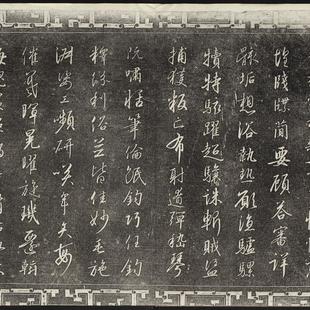 惶牋牒簡要顧答審詳
骸垢想浴執熱願涼驢騾
犢特駭躍超驤誅斬賊盜
捕獲叛亡布射遼彈嵇琴
阮嘯恬筆倫紙鈞巧任釣
釋紛利俗並皆佳妙毛施
淑姿工顰妍笑年矢每
催羲暉晃曜旋璣懸斡